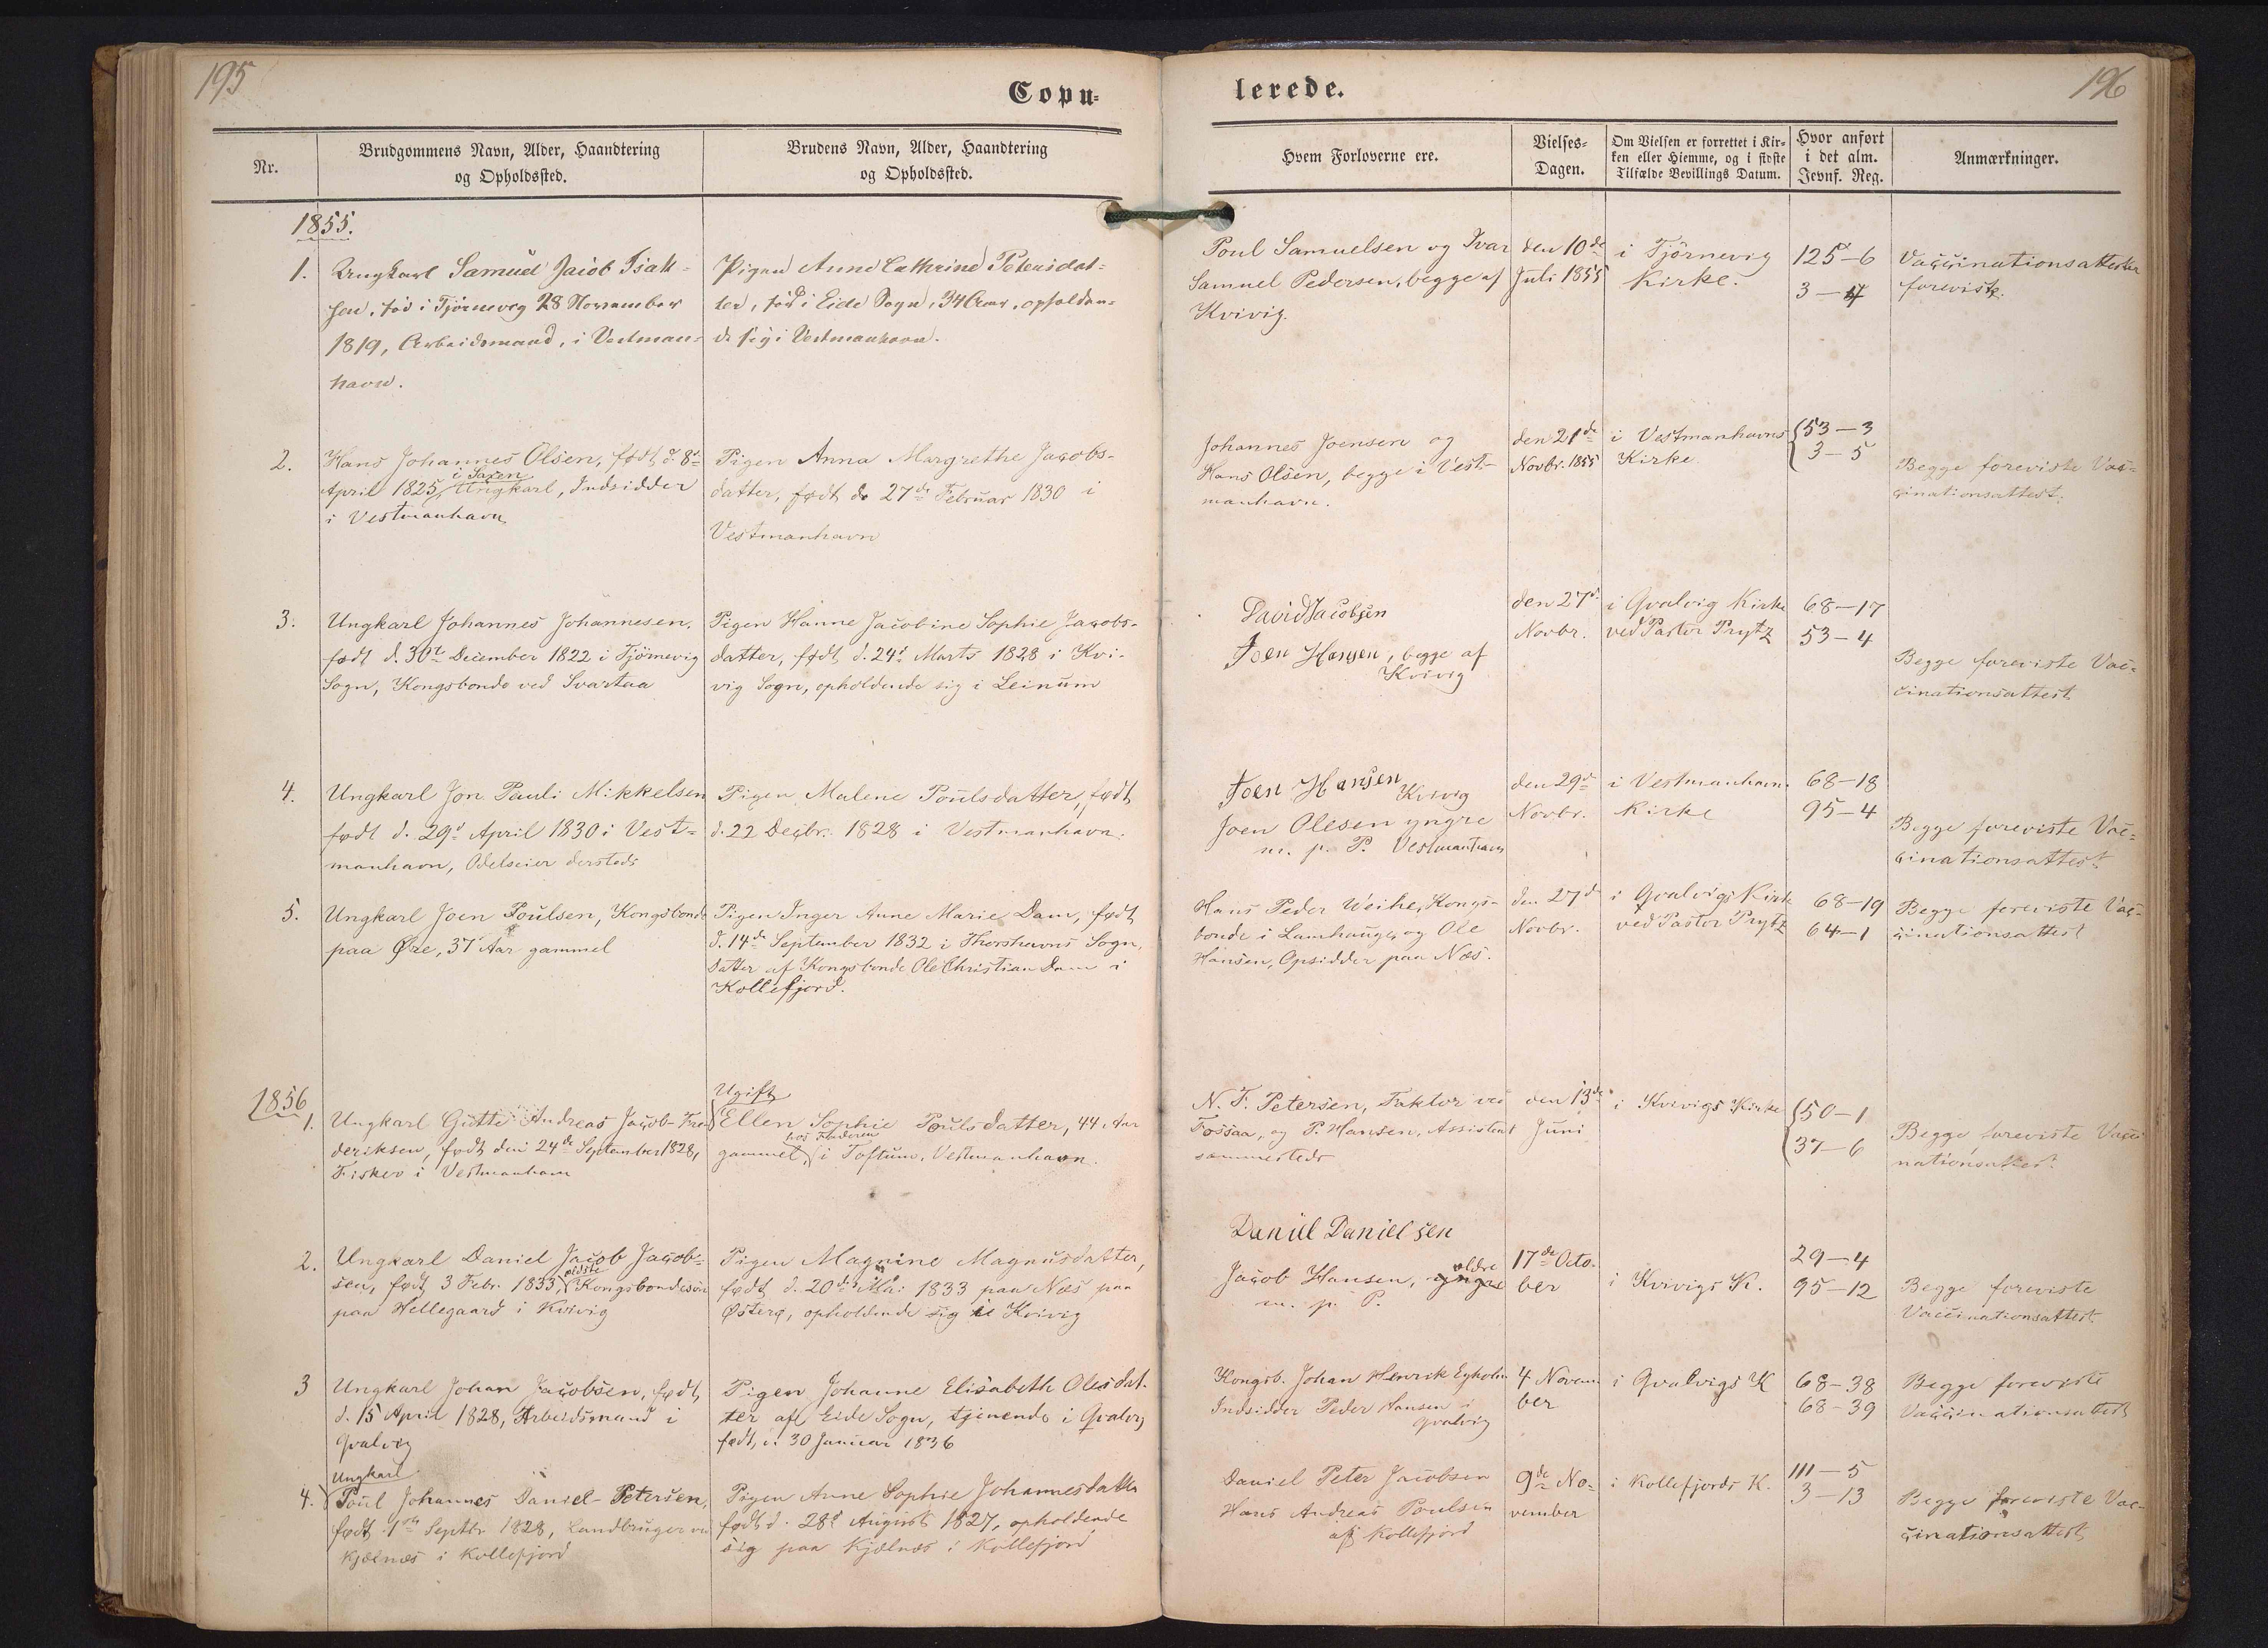 195
Copu-
Nr.
Brudgommens Navn, Alder, Haandtering
og Opholdssted.
Brudens Navn, Alder, Haandtering
og Opholdssted.
1855.
1.
Ungkarl Samuel Jacob Isak-
sen, fød i Tjörnevig 28 November
1819, Arbeidsmand, i Vestman-
havn.
Pigen Anne Cathrine Petersdat-
ter, fød i Eide Sogn, 34 Aar, opholden-
de sig i Vestmanhavn.
2.
Hans Johannes Olsen, født d. 8de
i Saxen
April 1825, Ungkarl, Indsidder
i Vestmanhavn
Pigen Anna Margrethe Jacobs-
datter, født d. 27de Februar 1830 i
Vestmanhavn
3.
Ungkarl Johannes Johannesen,
født d. 30te December 1822 i Tjörnevig
Sogn, Kongsbonde ved Svartaa
Pigen Hanne Jacobine Sophie Jacobs-
datter, født d. 24de Marts 1828 i Kvi-
vig Sogn, opholdende sig i Leinum
4.
Ungkarl Jon Pauli Mikkelsen
født d. 29de April 1830 i Vest-
manhavn, Odelseier dersteds
Pigen Malene Poulsdatter, født
d. 22 Decbr. 1828 i Vestmanhavn.
5.
Ungkarl Joen Poulsen, Kongsbonde
paa Øre, 37 Aar gammel
Pigen Inger Anne Marie Dam, født
d. 14de September 1832 i Thorshavns Sogn,
Datter af Kongsbonde Ole Christian Dam i
Kollefjord.
1856
1.
Ungkarl Gutte Andreas Jacob Fre-
deriksen, født den 24de September 1828,
Fisker i Vestmanhavn
Ugift
Ellen Sophie Poulsdatter, 44 Aar
hos Faderen
gammel, i Toftum, Vestmanhavn.
2.
Ungkarl Daniel Jacob Jacob-
sen, født 3 Febr. 1833, ældste Kongsbondesøn
paa Hellegaard i Kvivig
Pigen Magnine Magnusdatter,
født d. 20de Mai 1833 paa Næs paa
Østerø, opholdende sig i Kvivig
3
Ungkarl Johan Jacobsen, født
d. 15 April 1828, Arbeidsmand i
Qvalvig
Pigen Johanne Elisabeth Olesdat-
ter af Eide Sogn, tjenende i Qvalvig
født d. 30 Januar 1836
4.
Ungkarl
Poul Johannes Daniel-Petersen,
født 1ste Septbr. 1828, Landbruger ved
Kjelnæs i Kollefjord
Pigen Anne Sophie Johannesdatter
født d. 28de August 1827, opholdende
sig paa Kjelnæs i Kollefjord
196
lerede.
Hvem Forloverne ere.
Vielses-
Dagen.
Om Vielsen er forrettet i Kir-
ken eller Hiemme, og i sidste
Tilfælde Bevillings Datum.
Hvor anført
i det alm.
Jevnf. Reg.
Anmærkninger.
Poul Samuelsen og Ivar
Samuel Pedersen, begge af
Kvivig.
den 10de
Juli 1855
i Tjörnevig
Kirke.
125-6
3-
Vaccinationsattester
foreviste.
Johannes Joensen og
Hans Olsen, begge i Vest-
manhavn.
den 21de
Novbr. 1855
i Vestmanhavns
Kirke
53-3
3-5
Begge foreviste Vac-
cinationsattest.
David Jacobsen
Joen Hansen, begge af
Kvivig
den 27de
Novbr.
i Qvalvig Kirke
ved Pastor Prytz
68-17
53-4
Begge foreviste Vac-
cinationsattest
Joen Hansen
Kvivig
Joen Olesen yngre
m. p. P. Vestmanhavn
den 29de
Novbr.
i Vestmanhavn.
Kirke
68-18
95-4
Begge foreviste Vac-
cinationsattest
Hans Peder Weihe, Kongs-
bonde i Lamhauge, og Ole
Hansen, Opsidder paa Næs.
den 27de
Novbr.
i Qvalvigs Kirke
ved Pastor Prytz
68-19
64-1
Begge foreviste Vac-
cinationsattest
N. F. Petersen, Faktor ved
Fossaa, og P. Hansen, Assistent
sammesteds
den 13de
Juni
i Kvivigs Kirke
50-1
37-6
Begge foreviste Vacci
nationsattest.
Daniel Danielsen
Jacob Hansen, ældre
m. p. P.
17de Octo-
ber
i Kvivigs K.
29-4
95-12
Begge foreviste
Vaccinationsattest.
Kongsb. Johan Henrik Egholm
Indsidder Peder Hansen i
Qvalvig
4 Novem
ber
i Qvalvigs K
68-38
68-39
Begge foreviste
Vaccinationsattest
Daniel Peter Jacobsen
Hans Andreas Poulsen
af Kollefjord
9de No-
vember
i Kollefjords K.
111-5
3-13
Begge foreviste Vac-
cinationsattest